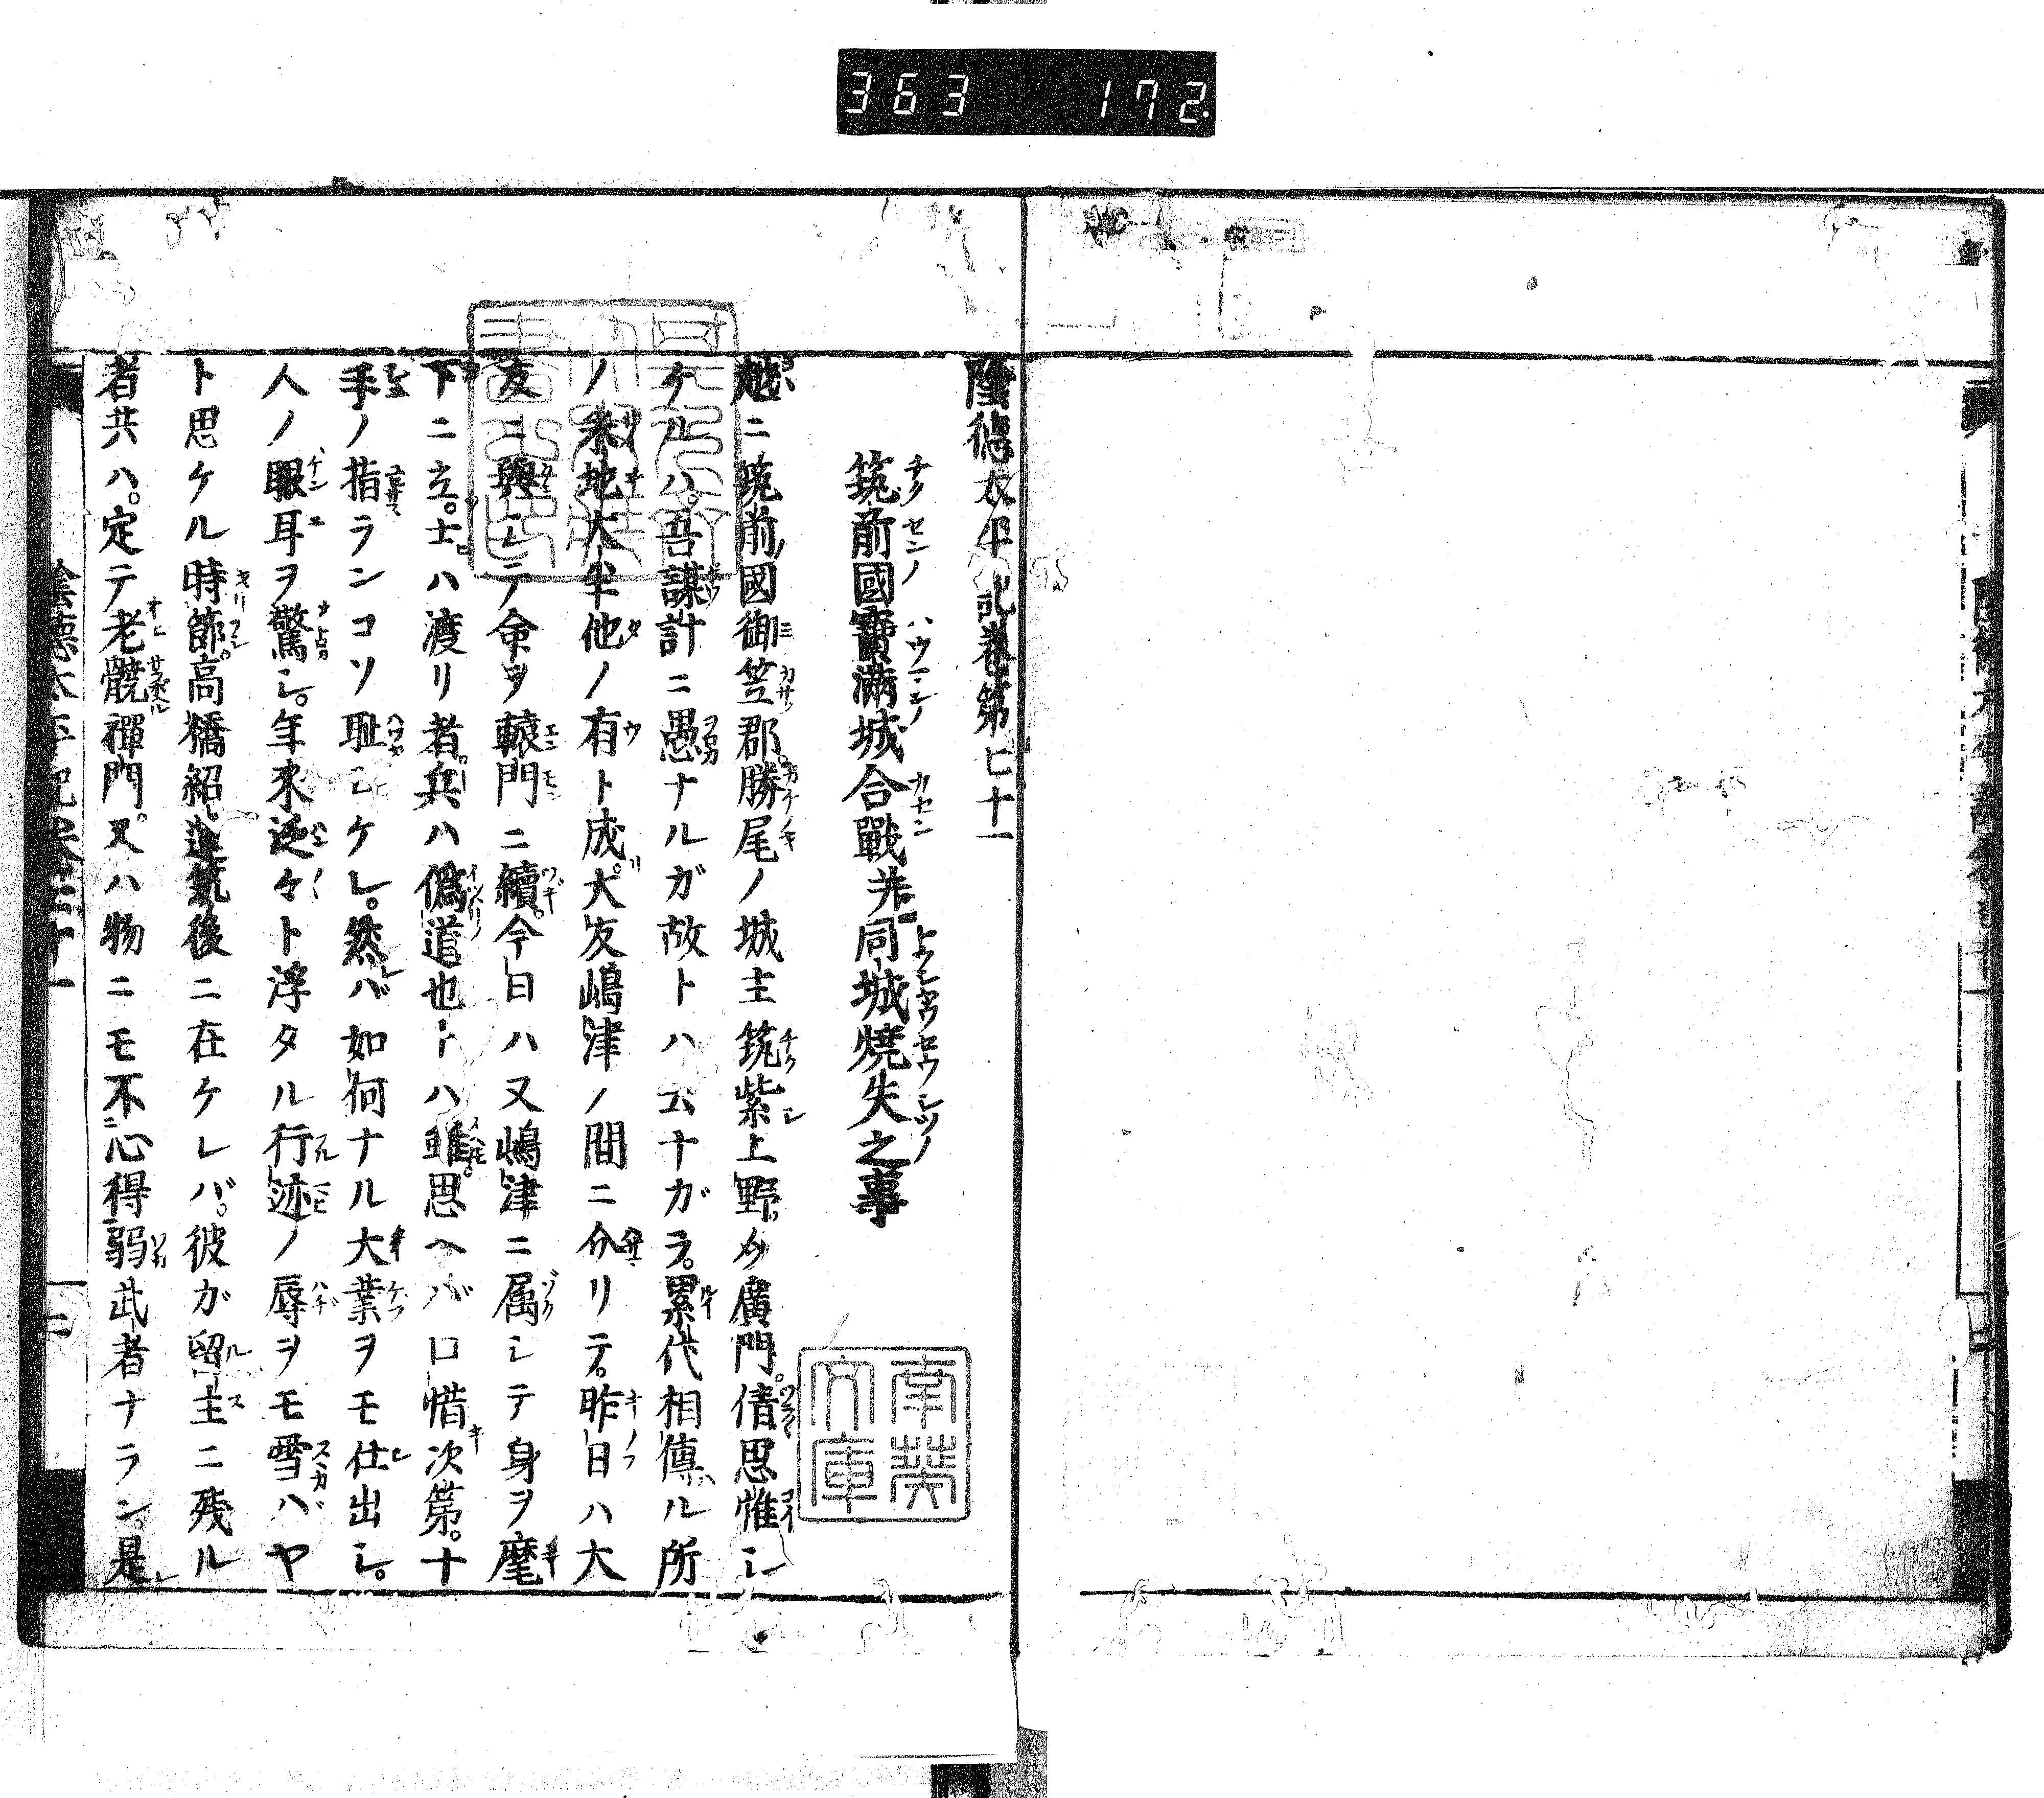 363 172
陰德太平記卷第七十一
筑前國寶滿城合戰并同城燒失之事
越ニ筑前國御笠郡勝尾ノ城主筑紫上野介廣門。倩思惟シ
ケルハ。吾謀計ニ愚ナルガ故トハ云ナガラ。累代相傳ル所
ノ釆地大半他ノ有ト成。大友嶋津ノ間ニ介リテ。昨日ハ大
友ニ與シテ命ヲ轅門ニ續。今日ハ又嶋津ニ属シテ身ヲ麾
下ニ立。士ハ渡リ者。兵ハ僞道也トハ雖思ヘバ口惜次第。十
手ノ指ランコソ耻シケレ。然バ如何ナル大業ヲモ仕出シ。
人ノ眼耳ヲ驚シ。年來泛々ト浮タル行迹ノ辱ヲモ雪ハヤ
ト思ケル時節。高橋紹運筑後ニ在ケレバ。彼ガ留主ニ残ル
者共ハ。定テ老髐禪門。又ハ物ニモ不心得弱武者ナラン。是
陰德太平記卷七十一
一
南葵文庫